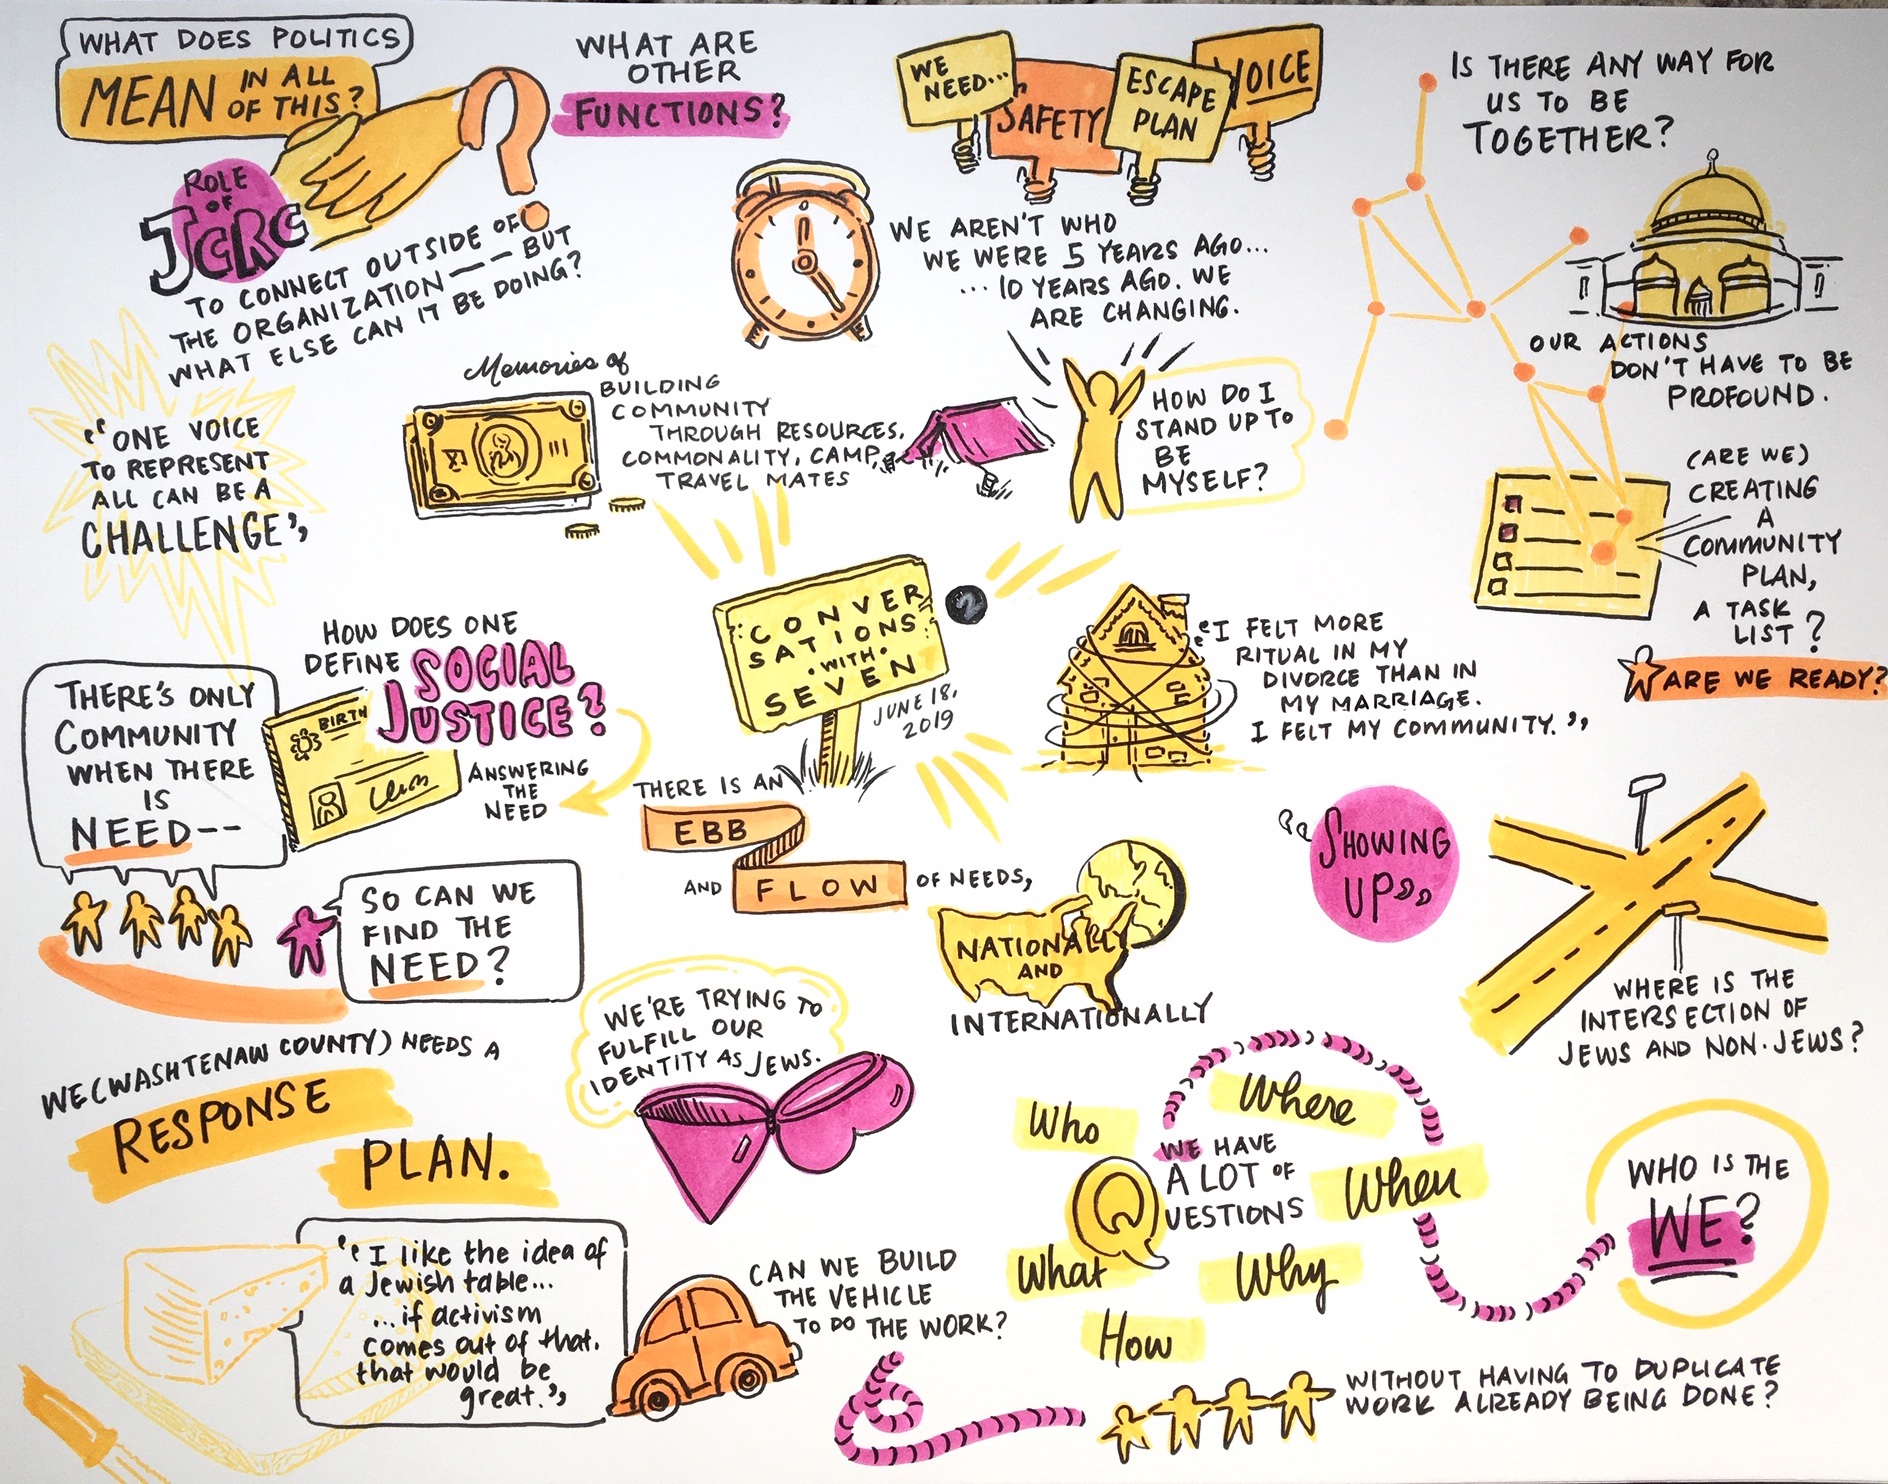 WHAT DOES POLITICS
MEAN IN ALL
OF THIS?
ROLE
OF
JCRC
TO CONNECT OUTSIDE OF
THE ORGANIZATION -- BUT
WHAT ELSE CAN IT BE DOING?
WHAT ARE
OTHER
FUNCTIONS?
WE
NEED...
SAFETY
ESCAPE
PLAN
VOICE
WE AREN'T WHO
WE WERE 5 YEARS AGO...
... 10 YEARS AGO. WE
ARE CHANGING.
IS THERE ANY WAY FOR
US TO BE
TOGETHER?
OUR ACTIONS
DON'T HAVE TO BE
PROFOUND.
"ONE VOICE
TO REPRESENT
ALL CAN BE A
CHALLENGE"
Memories of
BUILDING
COMMUNITY
THROUGH RESOURCES,
COMMONALITY, CAMP,
TRAVEL MATES
HOW DO I
STAND UP TO
BE
MYSELF?
(ARE WE)
CREATING
A
COMMUNITY
PLAN,
A TASK
LIST?
ARE WE READY?
HOW DOES ONE
DEFINE SOCIAL
JUSTICE?
BIRTH
ANSWERING
THE
NEED
CONVER
SATIONS
·WITH·
SEVEN
2
JUNE 18,
2019
"I FELT MORE
RITUAL IN MY
DIVORCE THAN IN
MY MARRIAGE.
I FELT MY COMMUNITY."
THERE'S ONLY
COMMUNITY
WHEN THERE
IS
NEED--
SO CAN WE
FIND THE
NEED?
THERE IS AN
EBB
AND FLOW OF NEEDS,
NATIONALLY
AND
INTERNATIONALLY
"SHOWING
UP"
WHERE IS THE
INTERSECTION OF
JEWS AND NON-JEWS?
WE (WASHTENAW COUNTY) NEEDS A
RESPONSE
PLAN.
WE'RE TRYING TO
FULFILL OUR
IDENTITY AS JEWS.
"I like the idea of
a Jewish table...
...if activism
comes out of that,
that would be
great."
CAN WE BUILD
THE VEHICLE
TO DO THE WORK?
Who
Where
WE HAVE
A LOT OF
QUESTIONS
When
What
Why
How
WHO IS THE
WE?
WITHOUT HAVING TO DUPLICATE
WORK ALREADY BEING DONE?